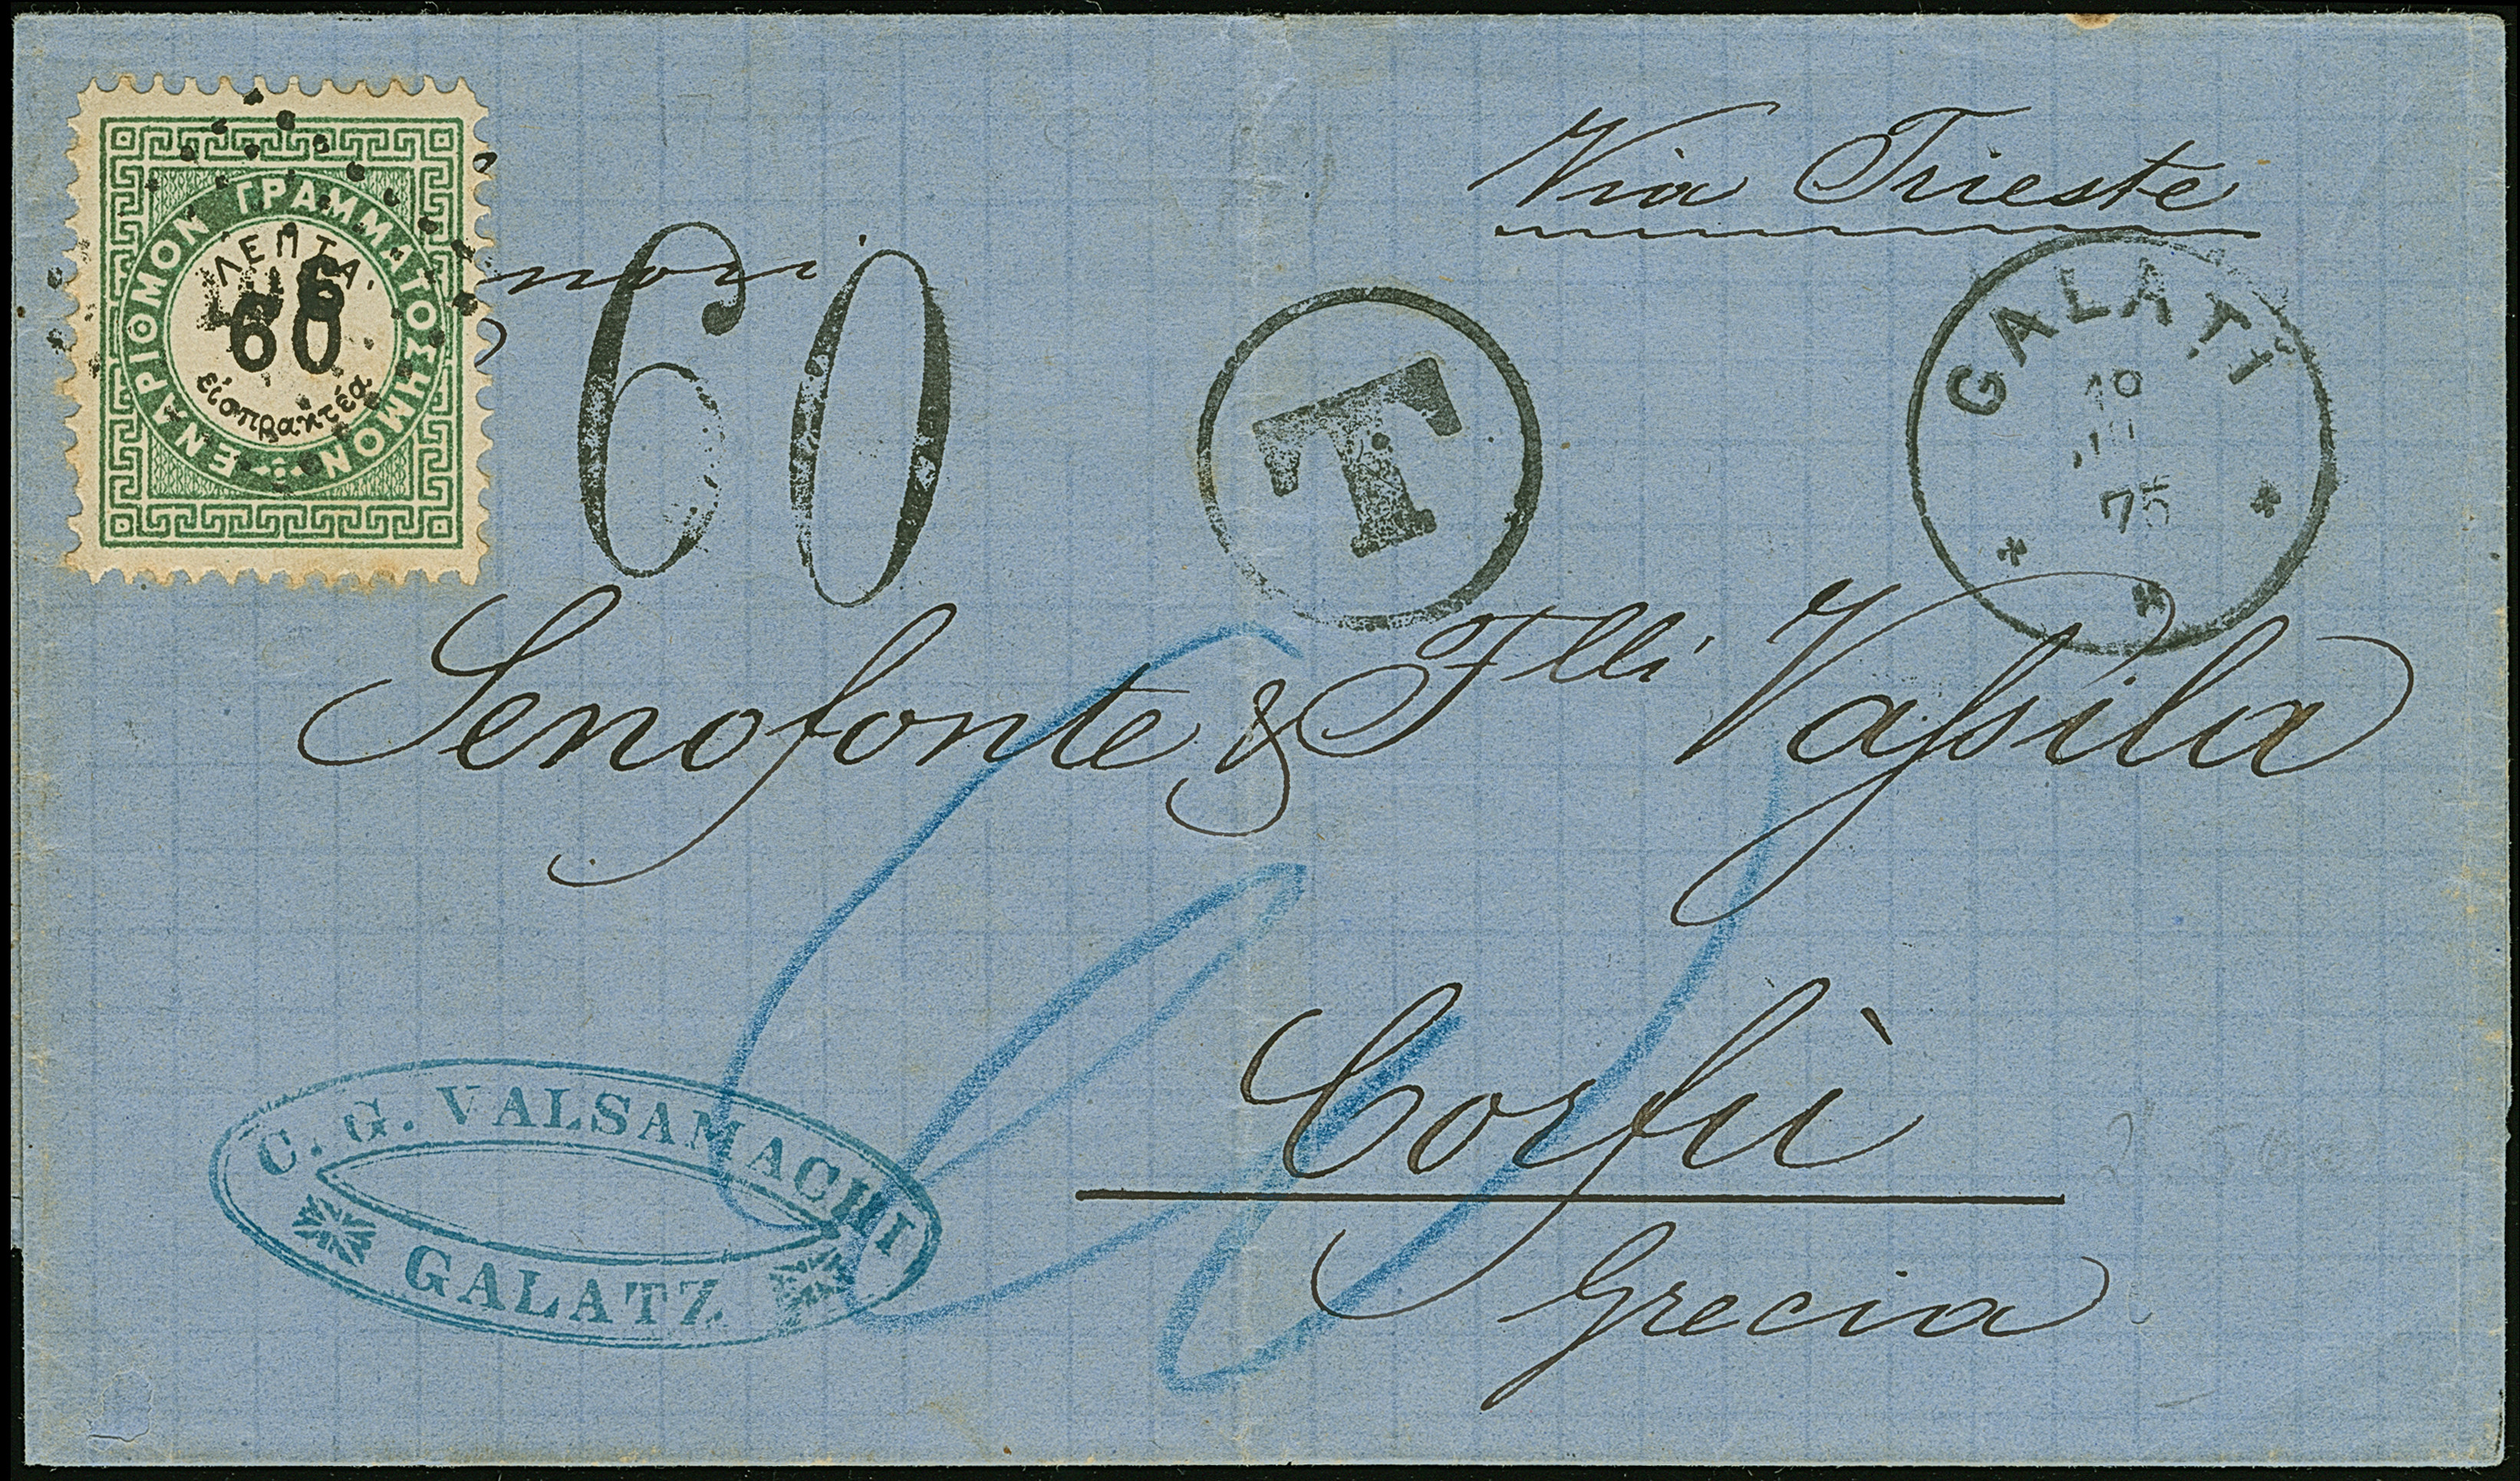 Via Trieste
ΕΝΑΡΙΘΜΟΝ ΓΡΑΜΜΑΤΟΣΗΜΟΝ
ΛΕΠΤΑ.
60
εἰσπρακτέα
60
T
GALATI
10
75
Senofonte & Flli Vassila
Corfù
Grecia
C. G. VALSAMACHI
GALATZ